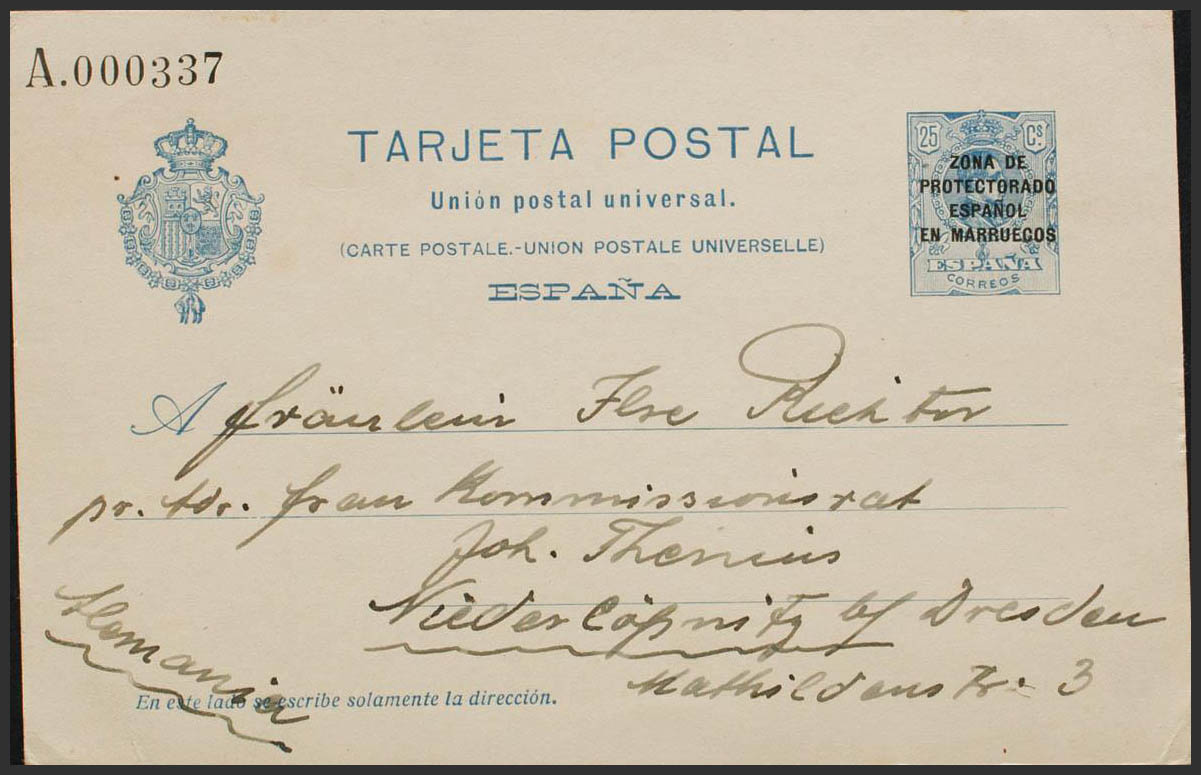 A.000337
TARJETA POSTAL
Unión postal universal.
(CARTE POSTALE.-UNION POSTALE UNIVERSELLE)
ESPAÑA
25 Cs
ZONA DE
PROTECTORADO
ESPAÑOL
EN MARRUECOS
ESPAÑA
CORREOS
A Fräulein Ilse Richter
pr. Adr. Frau Kommissionsrat
Joh. Thenius
Niederlößnitz b/ Dresden
Mathildenstr. 3
Alemania
En este lado se escribe solamente la dirección.